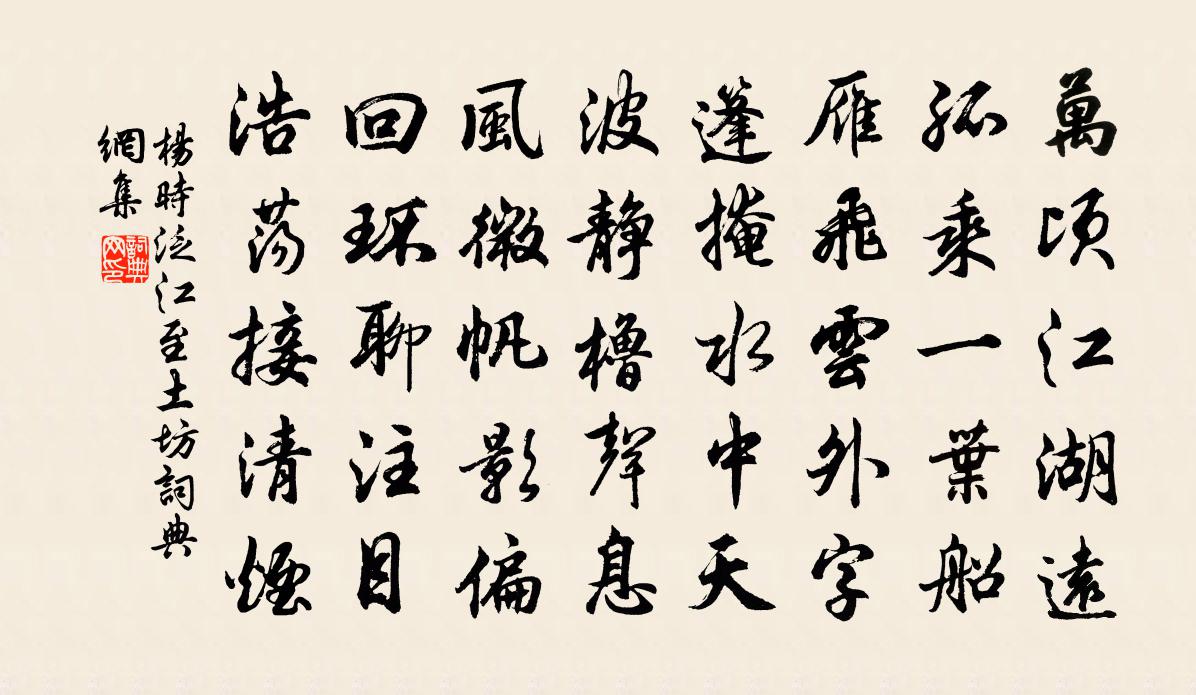 萬頃江湖遠
孤乘一葉船
雁飛雲外字
篷掩水中天
波静櫓聲息
風微帆影偏
回环聊注目
浩蕩接清煙
楊時泛江至土坊詞典
網集
詞典
网印